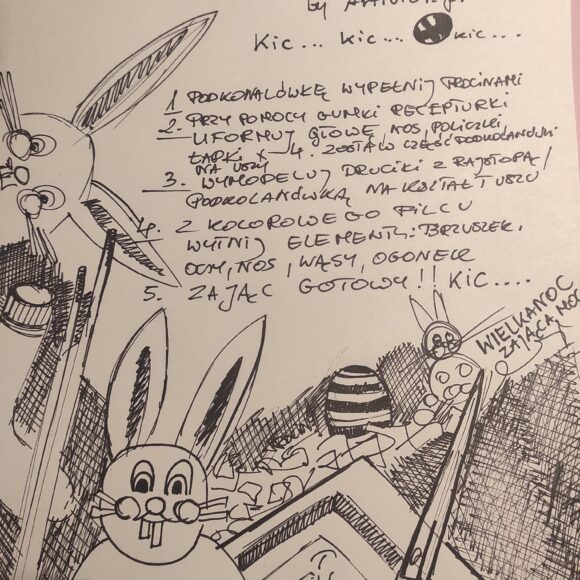 by
Kic... Kic... Kic....
1 PODKOLANÓWKĘ WYPEŁNIJ TROCINAMI
2. PRZY POMOCY GUMKI RECEPTURKI
UFORMUJ GŁOWĘ, NOS, POLICZKI,
ŁAPKI x 4. ZOSTAW CZĘŚĆ PODKOLANÓWKI
NA USZY
3. WYMODELUJ DRUCIKI Z RAJSTOPĄ/
PODKOLANÓWKĄ NA KSZTAŁT USZU
4. Z KOLOROWEGO FILCU
WYTNIJ ELEMENTY: BRZUSZEK,
OCZY, NOS, WĄSY, OGONEK
5. ZAJĄC GOTOWY!! KIC....
WIELKANOC
ZAJĄCA MOC